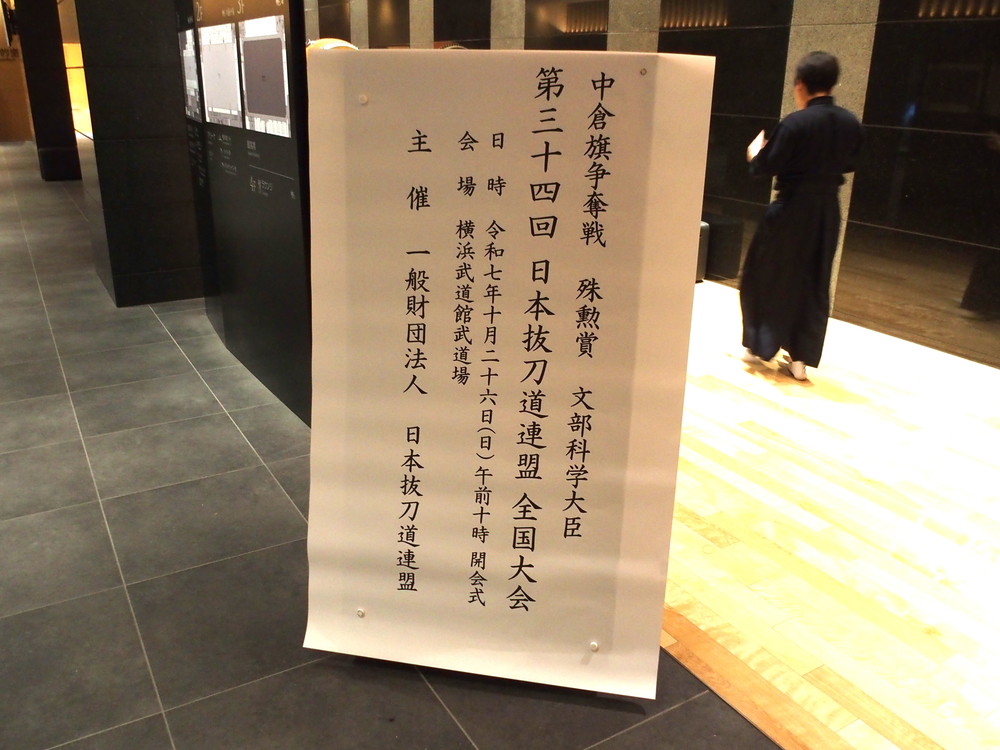 中倉旗争奪戦 殊勲賞 文部科学大臣
第三十四回 日本抜刀道連盟 全国大会
日時 令和七年十月二十六日(日)午前十時 開会式
会場 横浜武道館武道場
主催 一般財団法人 日本抜刀道連盟